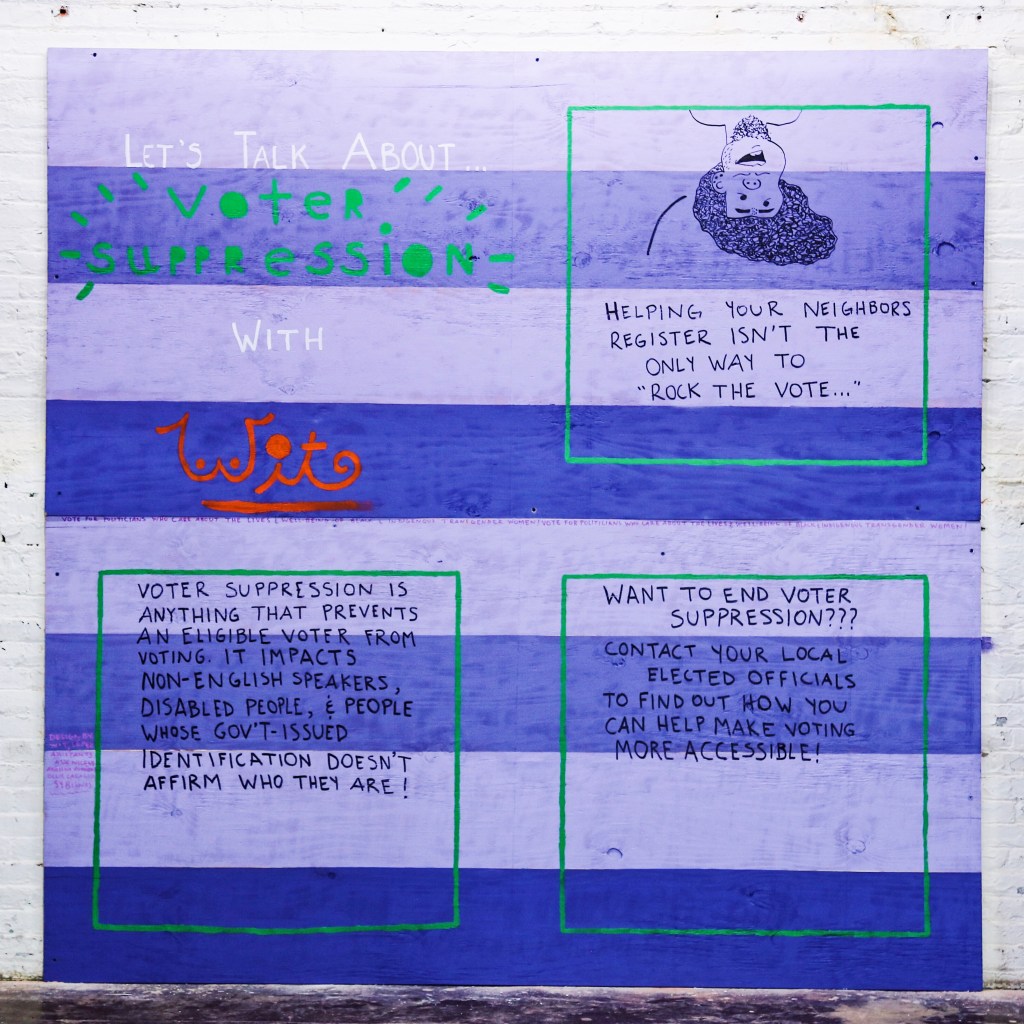 LET'S TALK ABOUT...
VOTER
SUPPRESSION
WITH
Wit
HELPING YOUR NEIGHBORS
REGISTER ISN'T THE
ONLY WAY TO
"ROCK THE VOTE..."
VOTE FOR POLITICIANS WHO CARE ABOUT THE LIVES & WELL BEING OF BLACK & INDIGENOUS TRANSGENDER WOMEN! VOTE FOR POLITICIANS WHO CARE ABOUT THE LIVES & WELL BEING OF BLACK & INDIGENOUS TRANSGENDER WOMEN!
VOTER SUPPRESSION IS
ANYTHING THAT PREVENTS
AN ELIGIBLE VOTER FROM
VOTING. IT IMPACTS
NON-ENGLISH SPEAKERS,
DISABLED PEOPLE, & PEOPLE
WHOSE GOV'T-ISSUED
IDENTIFICATION DOESN'T
AFFIRM WHO THEY ARE!
WANT TO END VOTER
SUPPRESSION???
CONTACT YOUR LOCAL
ELECTED OFFICIALS
TO FIND OUT HOW YOU
CAN HELP MAKE VOTING
MORE ACCESSIBLE!
DESIGN BY